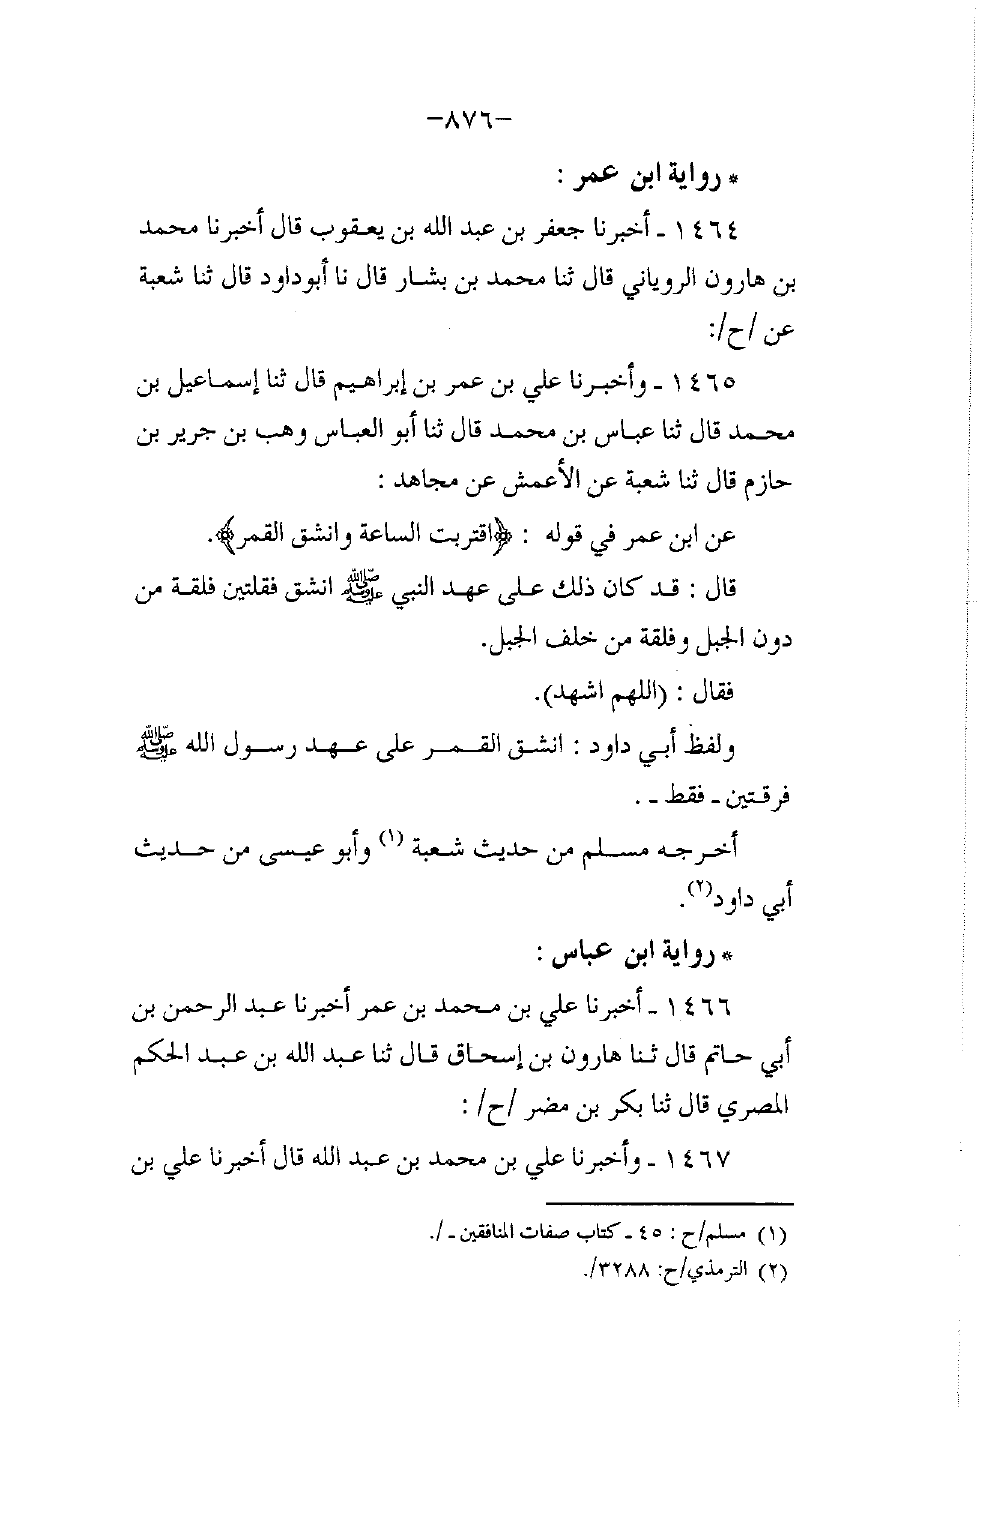 -٨٧٦-
* رواية ابن عمر :
١٤٦٤ ـ أخبرنا جعفر بن عبد الله بن يعقوب قال أخبرنا محمد
بن هارون الروياني قال ثنا محمد بن بشار قال نا أبوداود قال ثنا شعبة
عن /ح/:
١٤٦٥ ـ وأخبرنا علي بن عمر بن إبراهيم قال ثنا إسماعيل بن
محمد قال ثنا عباس بن محمد قال ثنا أبو العباس وهب بن جرير بن
حازم قال ثنا شعبة عن الأعمش عن مجاهد :
عن ابن عمر في قوله : ﴿اقتربت الساعة وانشق القمر﴾.
قال : قد كان ذلك على عهد النبي ﷺ انشق فقلتين فلقة من
دون الجبل وفلقة من خلف الجبل.
فقال : (اللهم اشهد).
ولفظ أبي داود : انشق القمر على عهد رسول الله ﷺ
فرقتين ـ فقط ـ .
أخرجه مسلم من حديث شعبة (١) وأبو عيسى من حديث
أبي داود(٢).
* رواية ابن عباس :
١٤٦٦ ـ أخبرنا علي بن محمد بن عمر أخبرنا عبد الرحمن بن
أبي حاتم قال ثنا هارون بن إسحاق قال ثنا عبد الله بن عبد الحكم
المصري قال ثنا بكر بن مضر /ح/ :
١٤٦٧ ـ وأخبرنا علي بن محمد بن عبد الله قال أخبرنا علي بن
(١) مسلم/ح : ٤٥ ـ كتاب صفات المنافقين ـ /.
(٢) الترمذي/ح: ٣٢٨٨/.